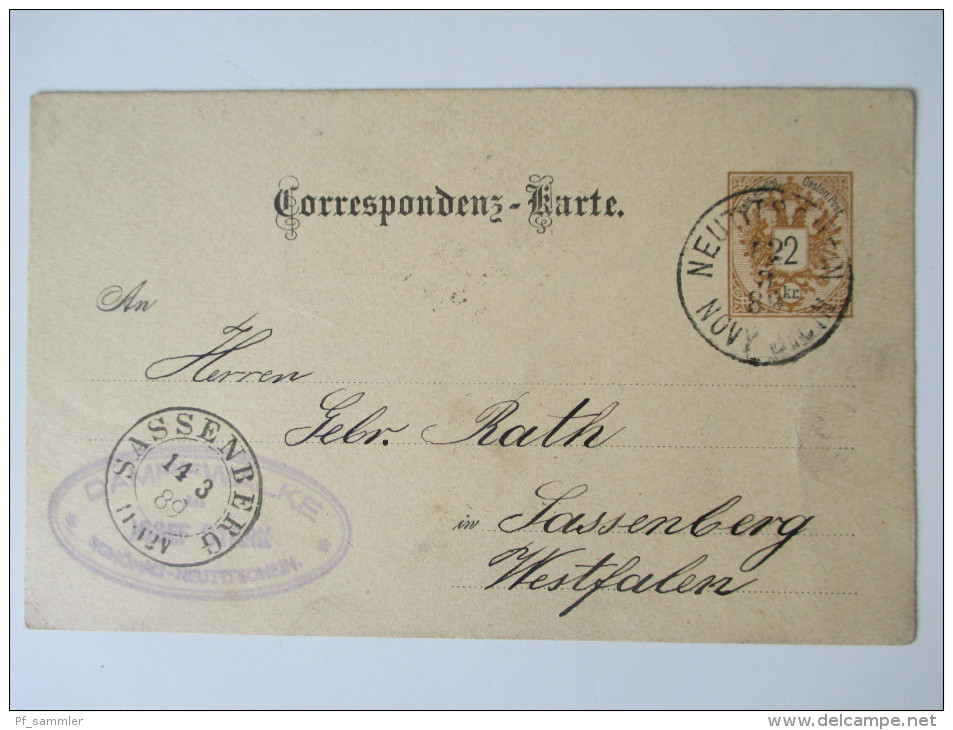 Correspondenz-Karte.
Oesterr. Post
2
kr.
NEUTITSCHEIN
12
3
89
NOVY JICIN
An
Herren
Gebr. Rath
in Sassenberg
Westfalen
SASSENBERG
14 3
89
DAMPFWALKE
SCHÖNAU-NEUTITSCHEIN.
Pf_sammler
www.delcampe.net